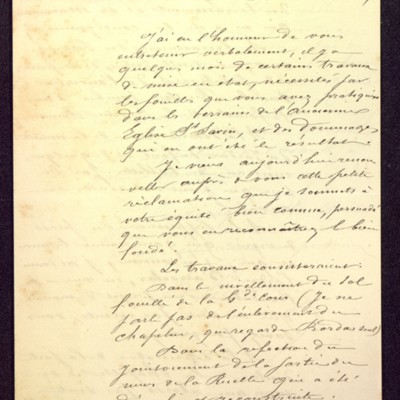 J'ai eu l'honneur de vous
entretenir verbalement, il y a
quelques mois de certains travaux
de mise en état, nécessités par
les fouilles que vous avez pratiquées
dans les terrains de l'ancienne
Eglise St Savin, et des dommages
qui en ont été le résultat.
Je viens aujourd'hui renou
veller auprès de vous cette petite
réclamation que je soumets à
votre équité bien connue, persuadé
que vous en reconnaîtrez le bien
fondé.
Les travaux consisteraient:
Dans le nivellement du sol
fouillé de la Gde Cour (Je ne
parle pas de l'enlèvement du
chapiteau, qui regarde seul)
Dans la réfection du
jointoiement de la partie du
mur de la Ruelle qui a été
et reconstruite.